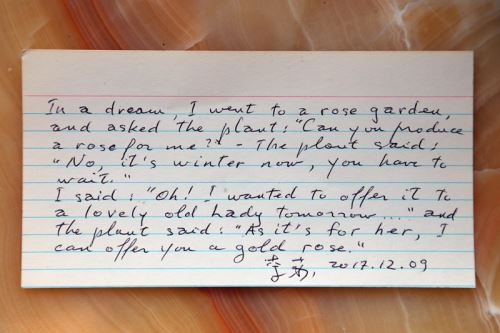 In a dream, I went to a rose garden,
and asked the plant: "Can you produce
a rose for me?" - The plant said:
"No, it's winter now, you have to
wait."
I said: "Oh! I wanted to offer it to
a lovely old lady tomorrow..." and
the plant said: "As it's for her, I
can offer you a gold rose."
2017.12.09